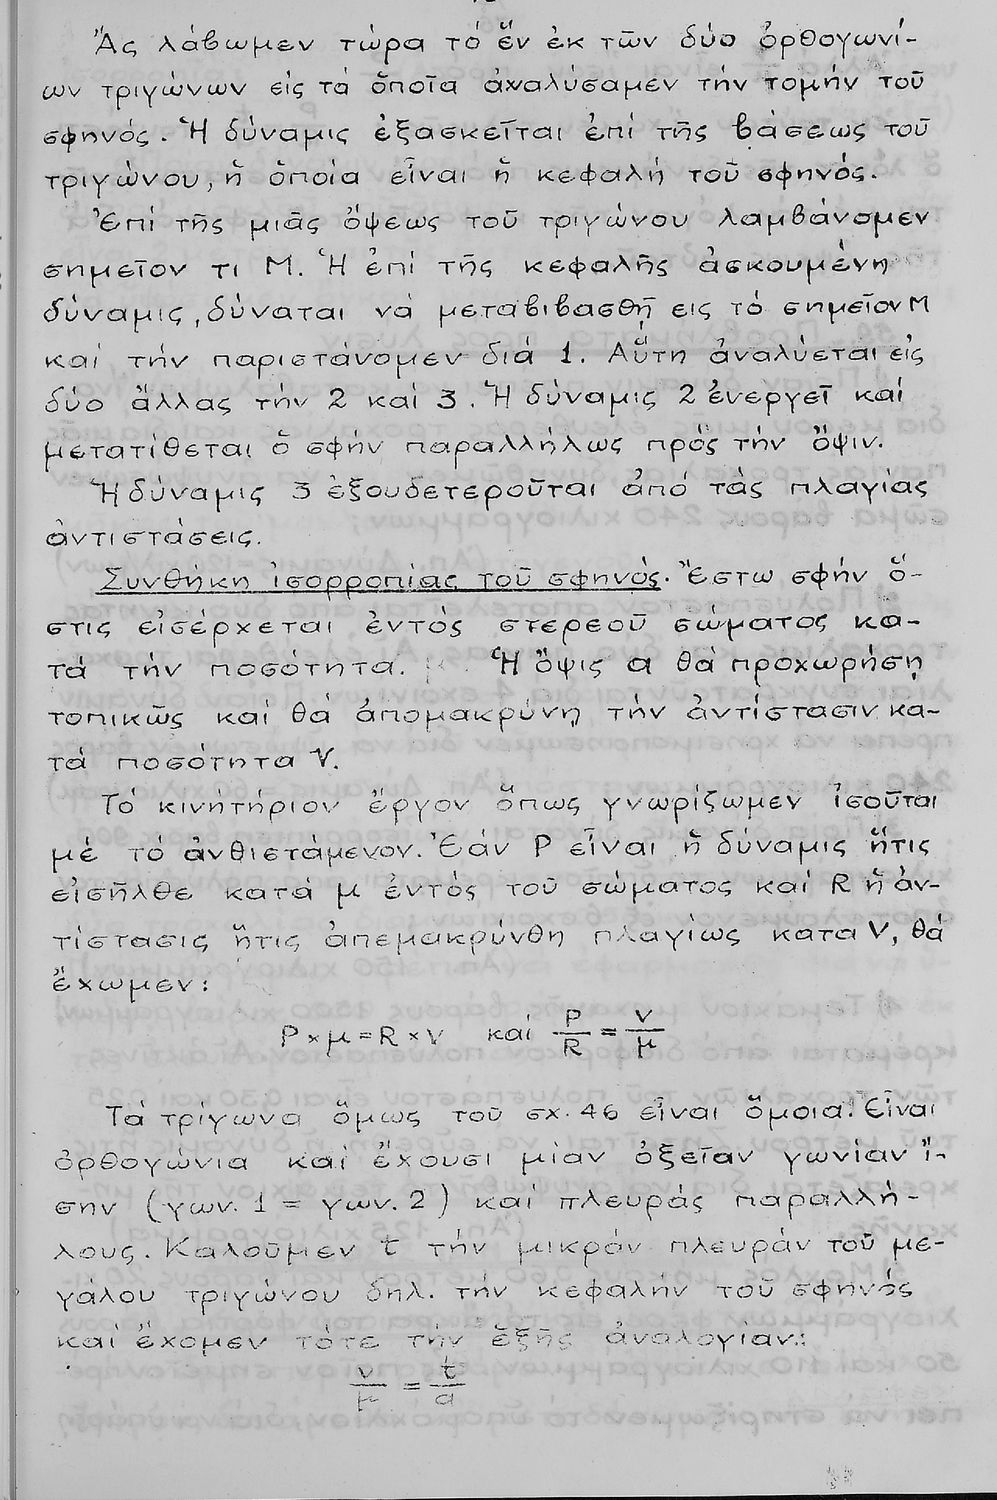 Ἄς λάβωμεν τώρα τό ἕν ἐκ τῶν δύο ὀρθογωνί-
ων τριγώνων εἰς τά ὁποῖα ἀναλύσαμεν τήν τομήν τοῦ
σφηνός. Ἡ δύναμις ἐξασκεῖται ἐπί τῆς βάσεως τοῦ
τριγώνου, ἡ ὁποία εἶναι ἡ κεφαλή τοῦ σφηνός.
Ἐπί τῆς μιᾶς ὄψεως τοῦ τριγώνου λαμβάνομεν
σημεῖον τι Μ. Ἡ ἐπί τῆς κεφαλῆς ἀσκουμένη
δύναμις, δύναται νά μεταβιβασθῇ εις τό σημεῖον Μ
καί τήν παριστάνομεν διά 1. Αὕτη ἀναλύεται εἰς
δύο ἄλλας τήν 2 καί 3. Ἡ δύναμις 2 ἐνεργεῖ καί
μετατίθεται ὁ σφήν παραλλήλως πρός τήν ὄψιν.
Ἡ δύναμις 3 ἐξουδετεροῦται ἀπό τάς πλαγίας
ἀντιστάσεις.
Συνθήκη ἰσορροπίας τοῦ σφηνός. Ἔστω σφήν ὅ-
στις εἰσέρχεται ἐντός στερεοῦ σώματος κα-
τά τήν ποσότητα. Ἡ ὄψις α θά προχωρήσῃ
τοπικῶς καί θά ἀπομακρύνῃ τήν ἀντίστασιν κα-
τά ποσότητα V.
Τό κινητήριον ἔργον ὅπως γνωρίζωμεν ἰσοῦται
μέ τό ἀνθιστάμενον. Ἐάν Ρ εἶναι ἡ δύναμις ἥτις
εἰσῆλθε κατά μ ἐντός τοῦ σώματος καί R ἡ ἀν-
τίστασις ἥτις ἀπεμακρύνθη πλαγίως κατα V, θά
ἔχωμεν:
P × μ = R × v καί P/R = v/μ
Τά τρίγωνα ὅμως τοῦ σχ. 46 εἶναι ὅμοια. Εἶναι
ὀρθογώνια καί ἔχουσι μίαν ὀξεῖαν γωνίαν ἴ-
σην (γων. 1 = γων. 2) καί πλευράς παραλλή-
λους. Καλοῦμεν t τήν μικράν πλευράν τοῦ με-
γάλου τριγώνου δηλ. τήν κεφαλήν τοῦ σφηνός
καί ἔχομεν τότε τήν ἑξῆς ἀναλογίαν:
v/μ = t/α